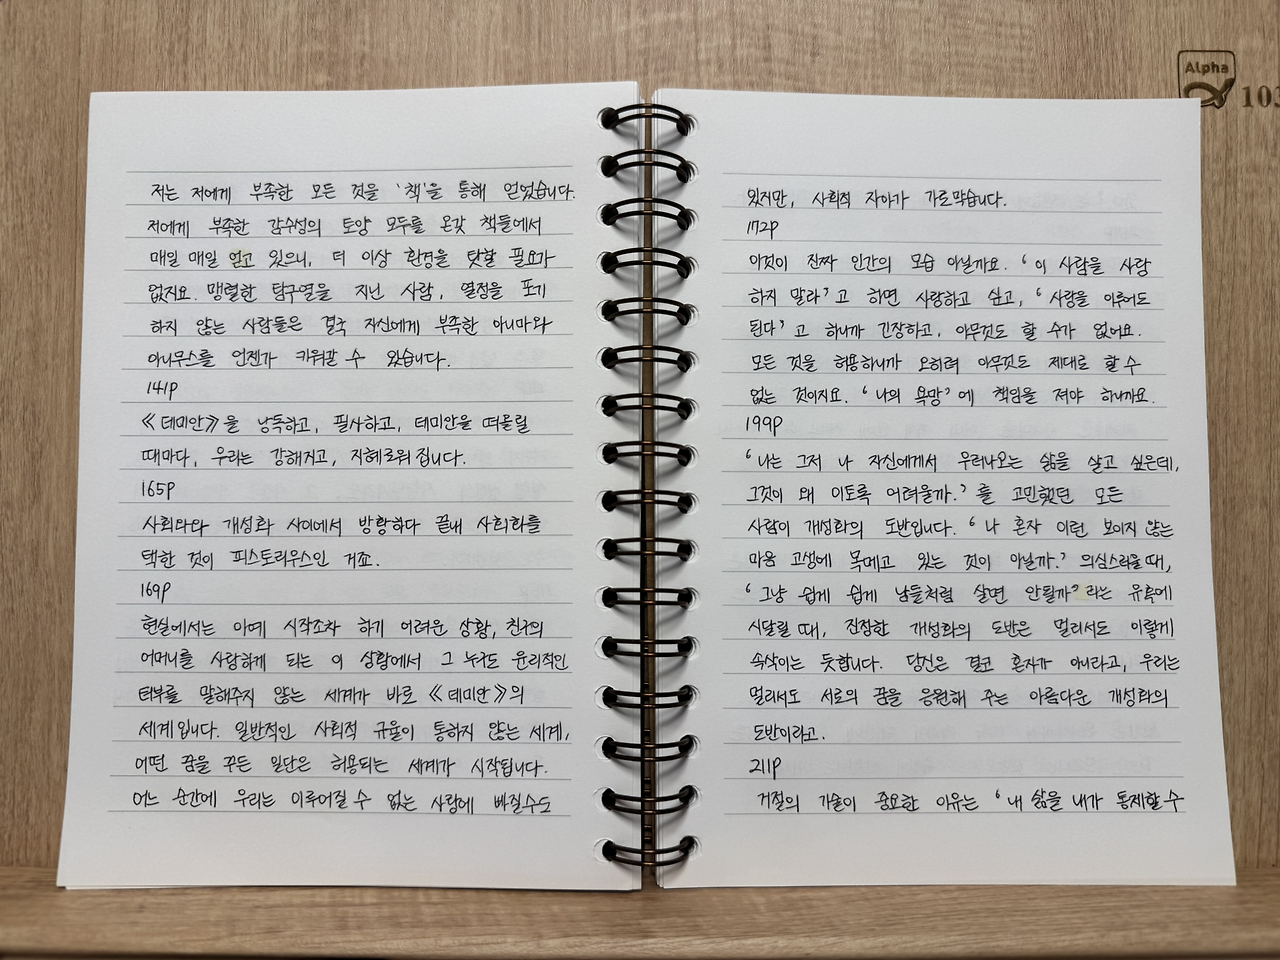 저는 저에게 부족한 모든 것을 '책'을 통해 얻었습니다.
저에게 부족한 감수성의 토양 모두를 온갖 책들에서
매일 매일 얻고 있으니, 더 이상 환경을 탓할 필요가
없지요. 맹렬한 탐구열을 지닌 사람, 열정을 포기
하지 않는 사람들은 결국 자신에게 부족한 아니마와
아니무스를 언젠가 키워갈 수 있습니다.
141p
《데미안》을 낭독하고, 필사하고, 데미안을 떠올릴
때마다, 우리는 강해지고, 지혜로워집니다.
165p
사회화와 개성화 사이에서 방황하다 끝내 사회화를
택한 것이 피스토리우스인 거죠.
169p
현실에서는 아예 시작조차 하기 어려운 상황, 친구의
어머니를 사랑하게 되는 이 상황에서 그 누구도 윤리적인
터부를 말해주지 않는 세계가 바로 《데미안》의
세계입니다. 일반적인 사회적 규율이 통하지 않는 세계,
어떤 꿈을 꾸든 일단은 허용되는 세계가 시작됩니다.
어느 순간에 우리는 이루어질 수 없는 사랑에 빠질수도
있지만, 사회적 자아가 가로막습니다.
172p
이것이 진짜 인간의 모습 아닐까요. '이 사람을 사랑
하지 말라'고 하면 사랑하고 싶고, '사랑을 이루어도
된다'고 하니까 긴장하고, 아무것도 할 수가 없어요.
모든 것을 허용하니까 오히려 아무것도 제대로 할 수
없는 것이지요. '나의 욕망'에 책임을 져야 하니까요.
199p
'나는 그저 나 자신에게서 우러나오는 삶을 살고 싶은데,
그것이 왜 이토록 어려울까.'를 고민했던 모든
사람이 개성화의 도반입니다. '나 혼자 이런 보이지 않는
마음 고생에 목메고 있는 것이 아닐까.' 의심스러울 때,
'그냥 쉽게 쉽게 남들처럼 살면 안될까'라는 유혹에
시달릴 때, 진정한 개성화의 도반은 멀리서도 이렇게
속삭이는 듯합니다. 당신은 결코 혼자가 아니라고, 우리는
멀리서도 서로의 꿈을 응원해 주는 아름다운 개성화의
도반이라고.
211p
거절의 기술이 중요한 이유는 '내 삶을 내가 통제할 수
Alpha
103